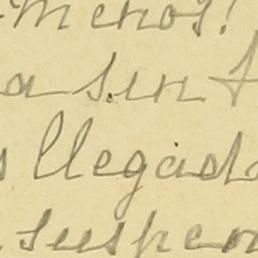 menos!
a sin
llegad
suspen